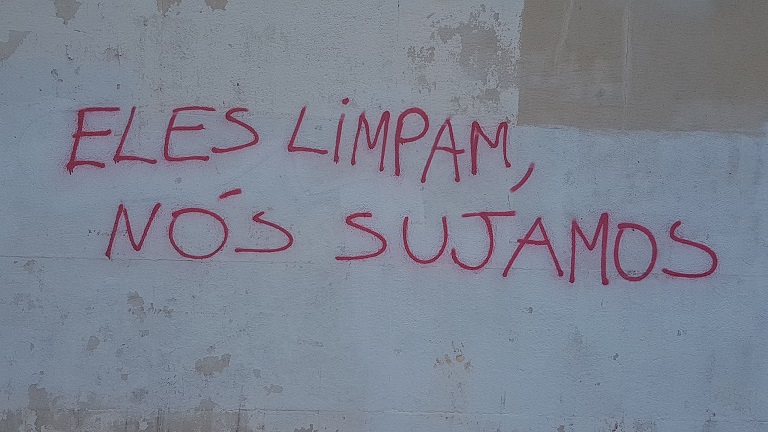 ELES LIMPAM,
NÓS SUJAMOS